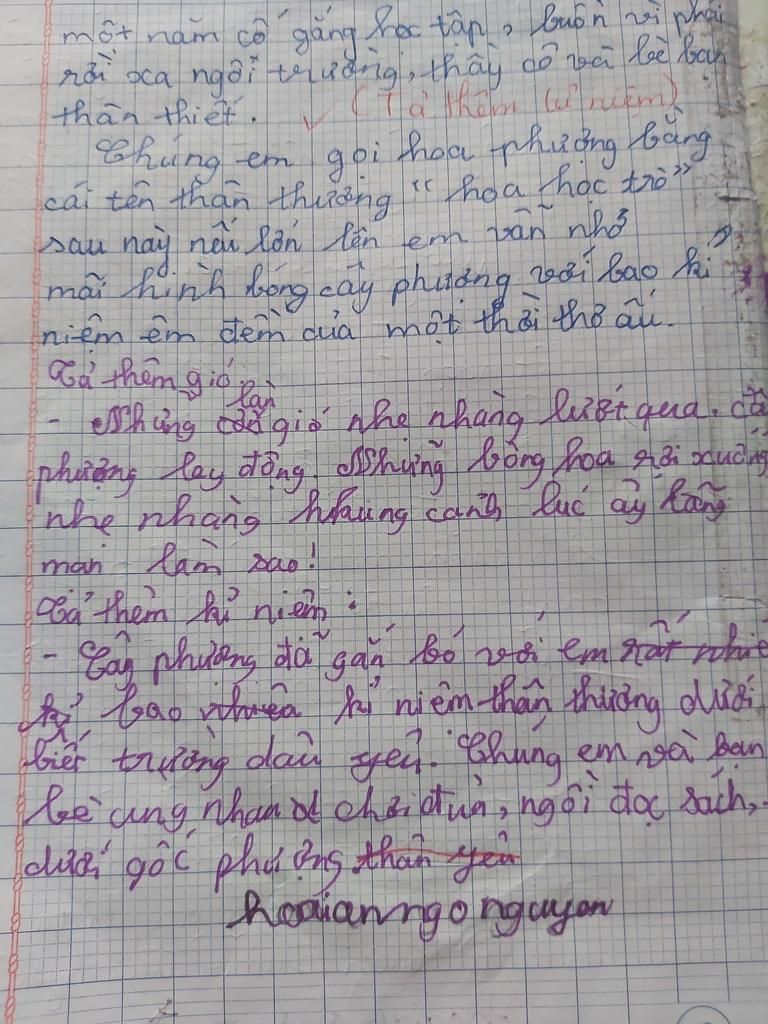 một năm cố gắng học tập, buồn vì phải
rời xa ngôi trường, thầy cô và bè bạn
thân thiết. ✓ (Tả thêm kỉ niệm)
Chúng em gọi hoa phượng bằng
cái tên thân thương "hoa học trò"
sau này nếu lớn lên em vẫn nhớ
mãi hình bóng cây phượng với bao kỉ
niệm êm đềm của một thời thơ ấu.
Tả thêm gió
- Những làn gió nhẹ nhàng lướt qua. cây
phượng lay động. Những bông hoa rơi xuống
nhẹ nhàng khung cảnh lúc ấy lãng
mạn làm sao!
Tả thêm kỉ niệm:
- Cây phượng đã gắn bó với em rất nhiề
bao kỉ niệm thân thương dưới
trường dấu yêu. Chúng em và bạn
bè cùng nhau chơi đùa, ngồi đọc sách,
dưới gốc phượng thân yêu